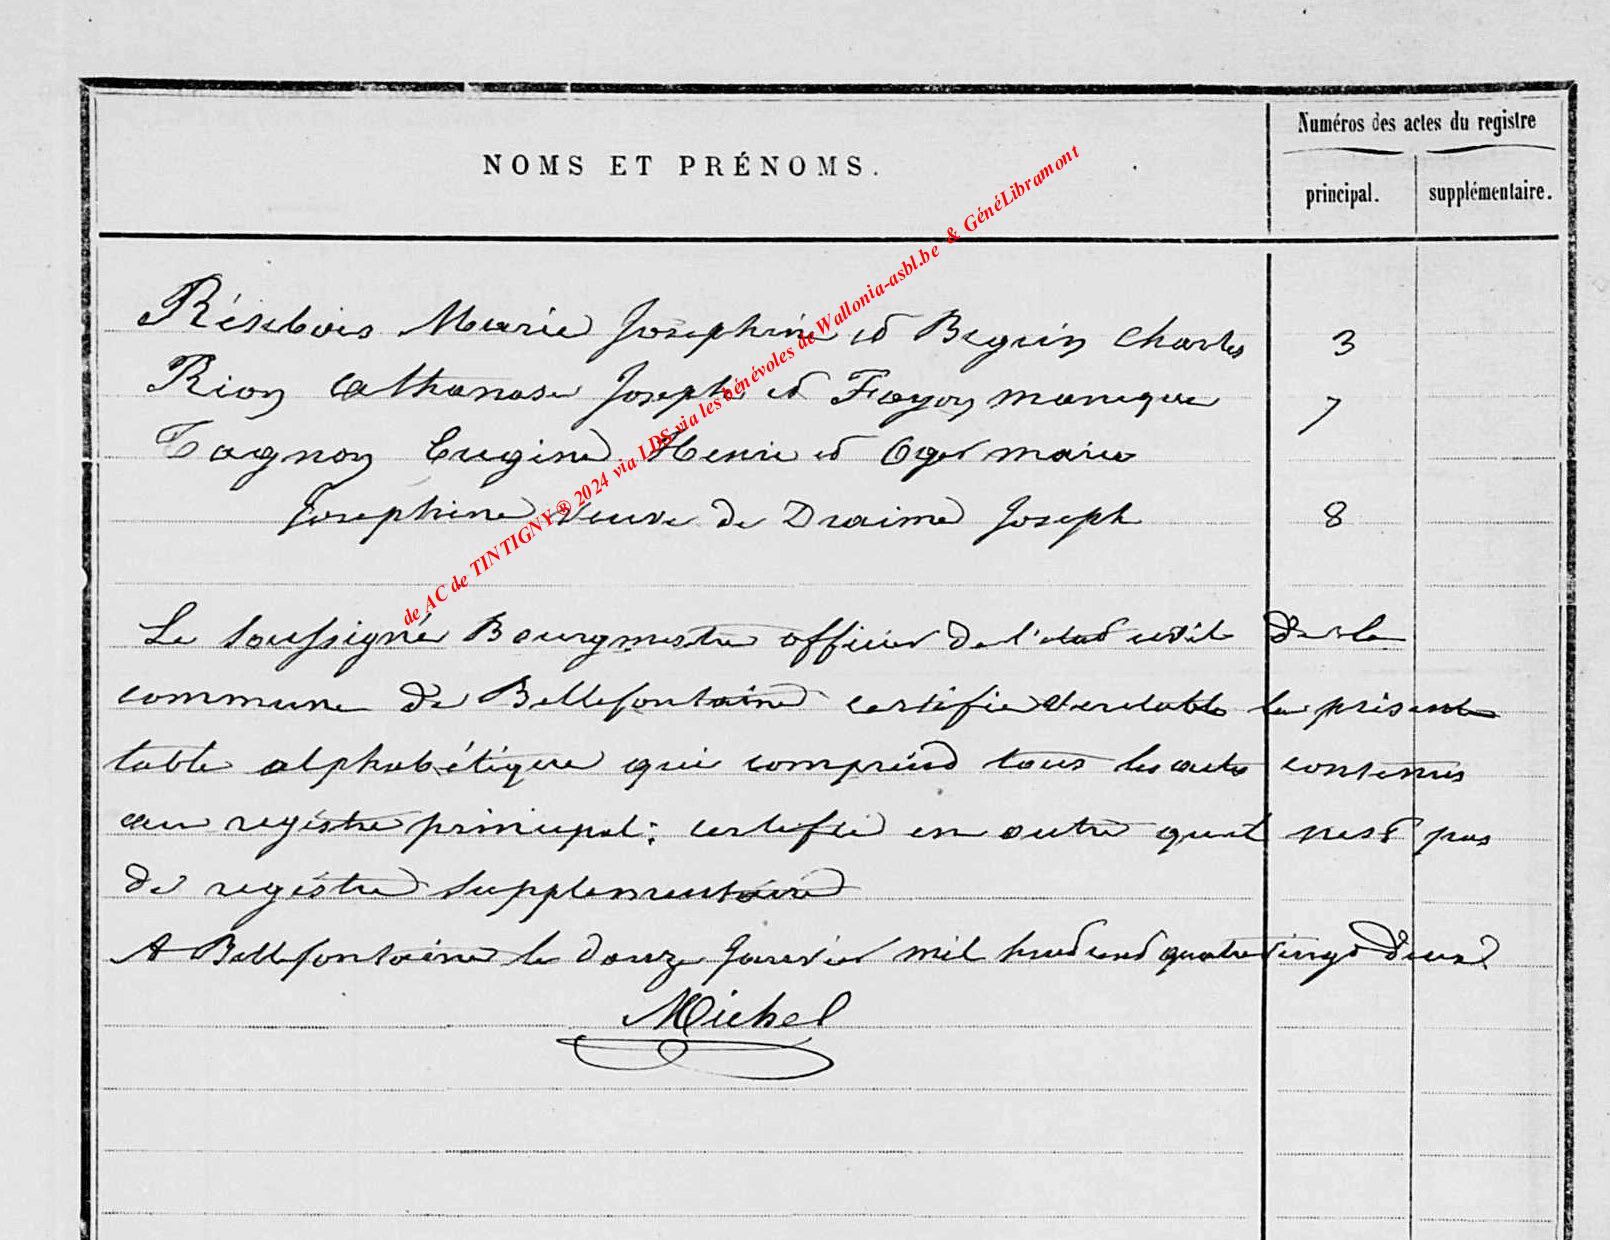 Numéros des actes du registre
NOMS ET PRÉNOMS.
principal. supplémentaire.
Résibois Marie Joséphine et Beguin Charles 3
Rion Athanase Joseph et Fayon 7
Tagnon Eugène Henri et Oger Marie
Joséphine veuve de Draime Joseph 8
Le soussigné Bourgmestre officier de l'état civil de la
commune de Bellefontaine certifie veritable la présente
table alphabétique qui comprend tous les actes contenus
au registre principal; certifie en outre quil nest pas
de registre supplementaire
A Bellefontaine le douze Janvier mil huit cent quatre vingt deux
Michel
de AC de TINTIGNY® 2024 via LDS via les bénévoles de Wallonia-asbl.be & GénéLibramont